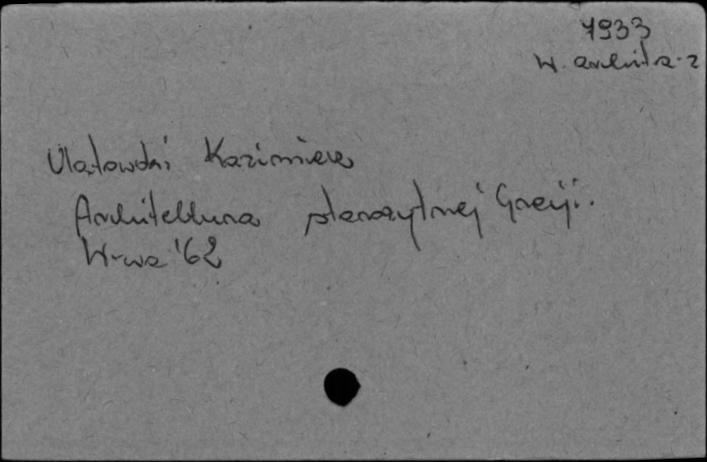 1933
W. archit.
Ulatowski Kazimierz
Architektura starożytnej Grecji.
W-wa '62